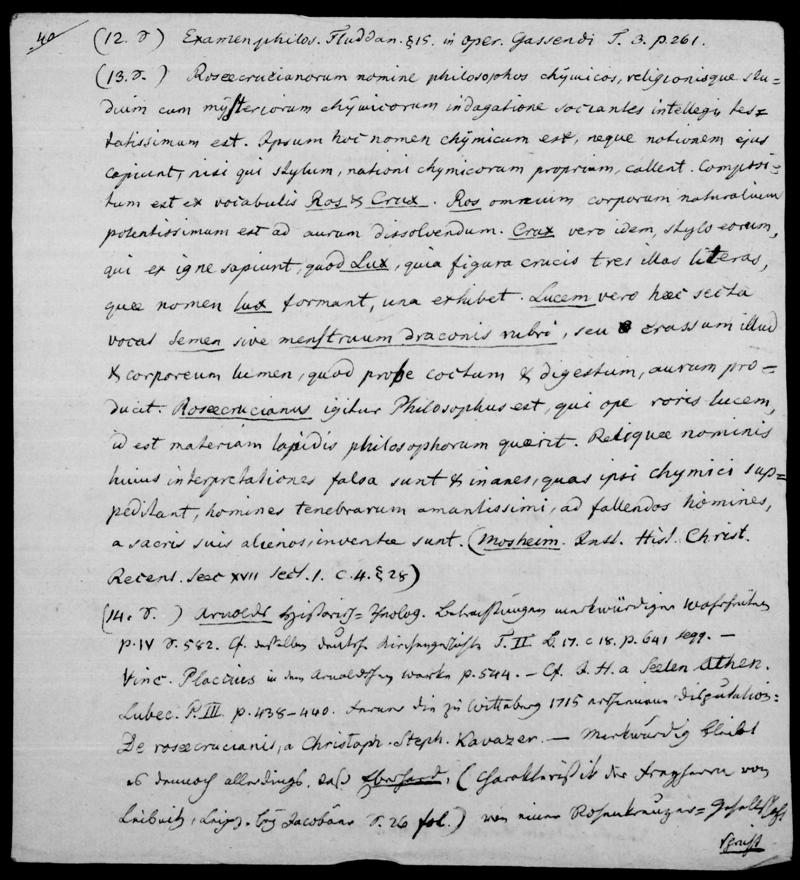 40
(12. d) Examen philos. Fluddan. §15. in oper. Gassendi T. 3. p. 261.
(13. d.) Rosaecrucianorum nomine philosophos chÿmicos, religionisque stu=
dium cum mÿsteriorum chÿmicorum indagatione sociantes intellegi, tes=
tatissimum est. Ipsum hoc nomen chÿmicum est, neque notionem ejus
capiunt, nisi qui stylum, nationi chymicorum proprium, callent. Composi=
tum est ex vocabulis Ros & Crux. Ros omnium corporum naturalium
potentissimum est ad aurum dissolvendum. Crux vero idem, stylo eorum,
qui ex igne sapiunt, quod Lux, quia figura crucis tres illas literas,
quae nomen lux formant, una exhibet. Lucem vero haec secta
vocat semen sive menstruum draconis rubri, seu crassum illud
& corporeum lumen, quod probe coctum & digestum, aurum pro=
ducit. Rosaecrucianus igitur Philosophus est, qui ope roris lucem,
id est materiam lapidis philosophorum quaerit. Reliquae nominis
huius interpretationes falsa sunt & inanes, quas ipsi chymici sup=
peditant, homines tenebrarum amantissimi, ad fallendos homines,
a sacris suis alienos, inventae sunt. (Mosheim. Inst. Hist. Christ.
Recent. Saec XVII Sect. I. c. 4. § 28)
(14. d.) Arnolds Historisch= Theolog. Betrachtungen merkwürdiger Wahrheiten
p. IV S. 582. Cf. desselben deutsche Kirchengeschichte T. II L. 17. c 18. p. 641 seqq. —
Vinc. Placcius in dem Arnoldschen werke p. 544. — Cf. I. H. a Seelen Athen.
Lubec. P. III p. 438–440. Ferner die zu Wittaburg 1715 erschienene Disputation:
De rosaecrucianis, a Christoph. Steph. Kavazer. — Merkwürdig bleibt
es dennoch allerdings, daß Eberhard, (Charakteristik der von
Leibnitz, Leipz. beÿ Jacobäer S. 26 fol.) von einer Rosenkreuzer= Gesellschaft
spricht